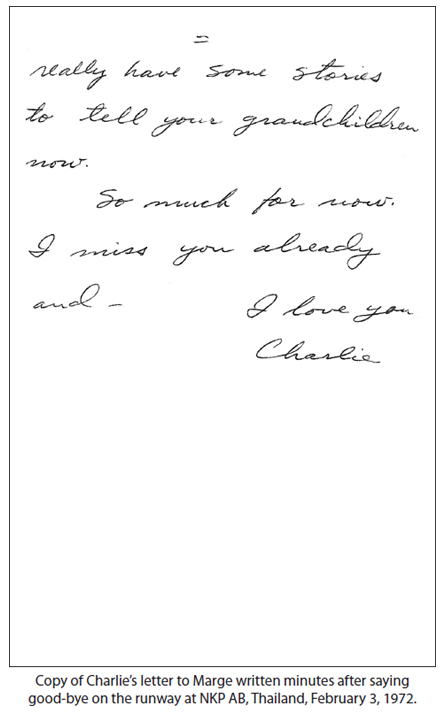 =
really have some stories
to tell your grandchildren
now.
So much for now.
I miss you already
and –
I love you
Charlie
Copy of Charlie's letter to Marge written minutes after saying
good-bye on the runway at NKP AB, Thailand, February 3, 1972.